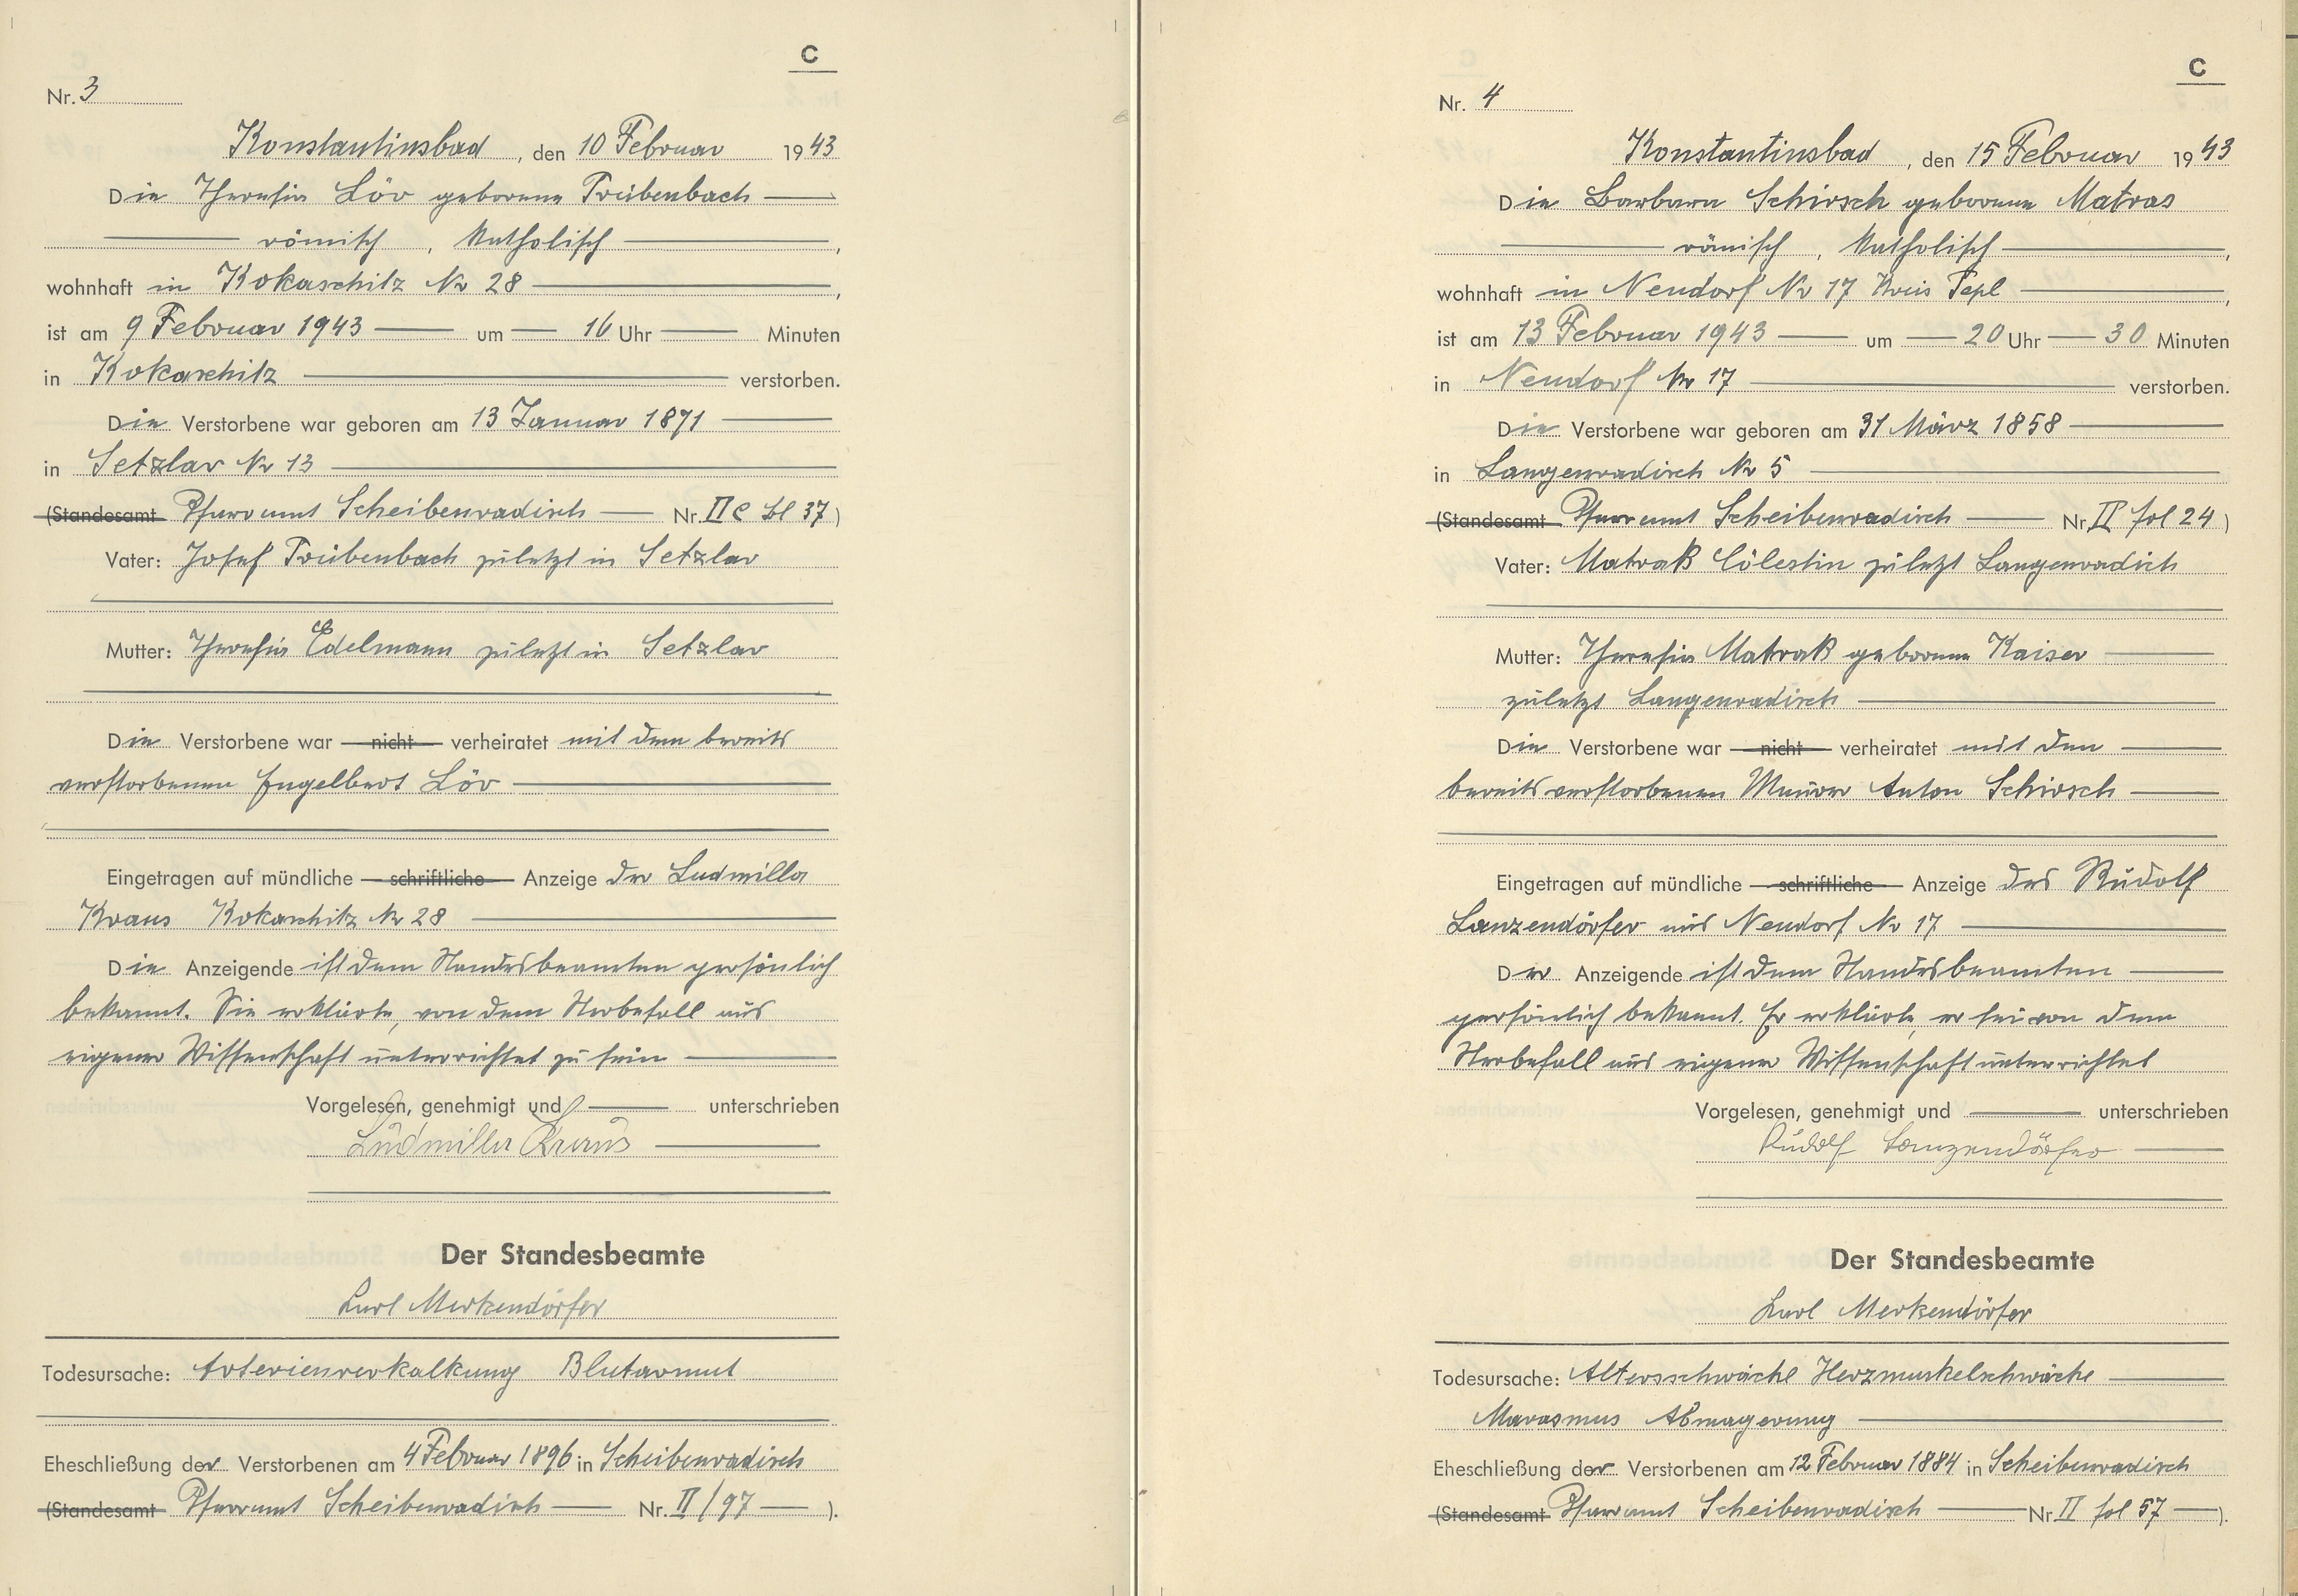 C
Nr. 3
Konstantinsbad, den 10 Februar 1943
Die Theresia Löv geborene Trübenbach
römisch, katholisch,
wohnhaft in Kokaschitz Nr 28,
ist am 9 Februar 1943 um 16 Uhr Minuten
in Kokaschitz verstorben.
Die Verstorbene war geboren am 13 Januar 1871
in Setzlav Nr 13
(Standesamt Pfarramt Scheibenradisch Nr. II e bl 37)
Vater: Josef Trübenbach zuletzt in Setzlav
Mutter: Theresia Edelmann zuletzt in Setzlav
Die Verstorbene war nicht verheiratet mit dem bereits
verstorbenen Engelbert Löv
Eingetragen auf mündliche schriftliche Anzeige der Ludmilla
Kraus Kokaschitz Nr 28
Die Anzeigende ist dem Standesbeamten persönlich
bekannt. Sie erklärte, von dem Sterbefall aus
eigener Wissenschaft unterrichtet zu sein
Vorgelesen, genehmigt und unterschrieben
Ludmilla Kraus
Der Standesbeamte
Karl Merkendörfer
Todesursache: Arterienverkalkung Blutarmut
Eheschließung der Verstorbenen am 4 Februar 1896 in Scheibenradisch
(Standesamt Pfarramt Scheibenradisch Nr. II/97).
C
Nr. 4
Konstantinsbad, den 15 Februar 1943
Die Barbara Schirsch geborene Matras
römisch, katholisch,
wohnhaft in Neudorf Nr 17 Kreis Tepl,
ist am 13 Februar 1943 um 20 Uhr 30 Minuten
in Neudorf Nr 17 verstorben.
Die Verstorbene war geboren am 31 März 1858
in Langenradisch Nr 5
(Standesamt Pfarramt Scheibenradisch Nr. II fol 24)
Vater: Matraß Cölestin zuletzt Langenradich
Mutter: Theresia Matraß geborene Kaiser
zuletzt Langenradisch
Die Verstorbene war nicht verheiratet mit den
bereits verstorbenen Maurer Anton Schirsch
Eingetragen auf mündliche schriftliche Anzeige des Rudolf
Lanzendörfer aus Neudorf Nr 17
Der Anzeigende ist dem Standesbeamten
persönlich bekannt. Er erklärte, er sei von dem
Sterbefall aus eigener Wissenschaft unterrichtet
Vorgelesen, genehmigt und unterschrieben
Rudolf Lanzendörfer
Der Standesbeamte
Karl Merkendörfer
Todesursache: Altersschwäche Herzmuskelschwäche
Marasmus Abmagerung
Eheschließung der Verstorbenen am 12 Februar 1884 in Scheibenradisch
(Standesamt Pfarramt Scheibenradisch Nr. II fol 57).